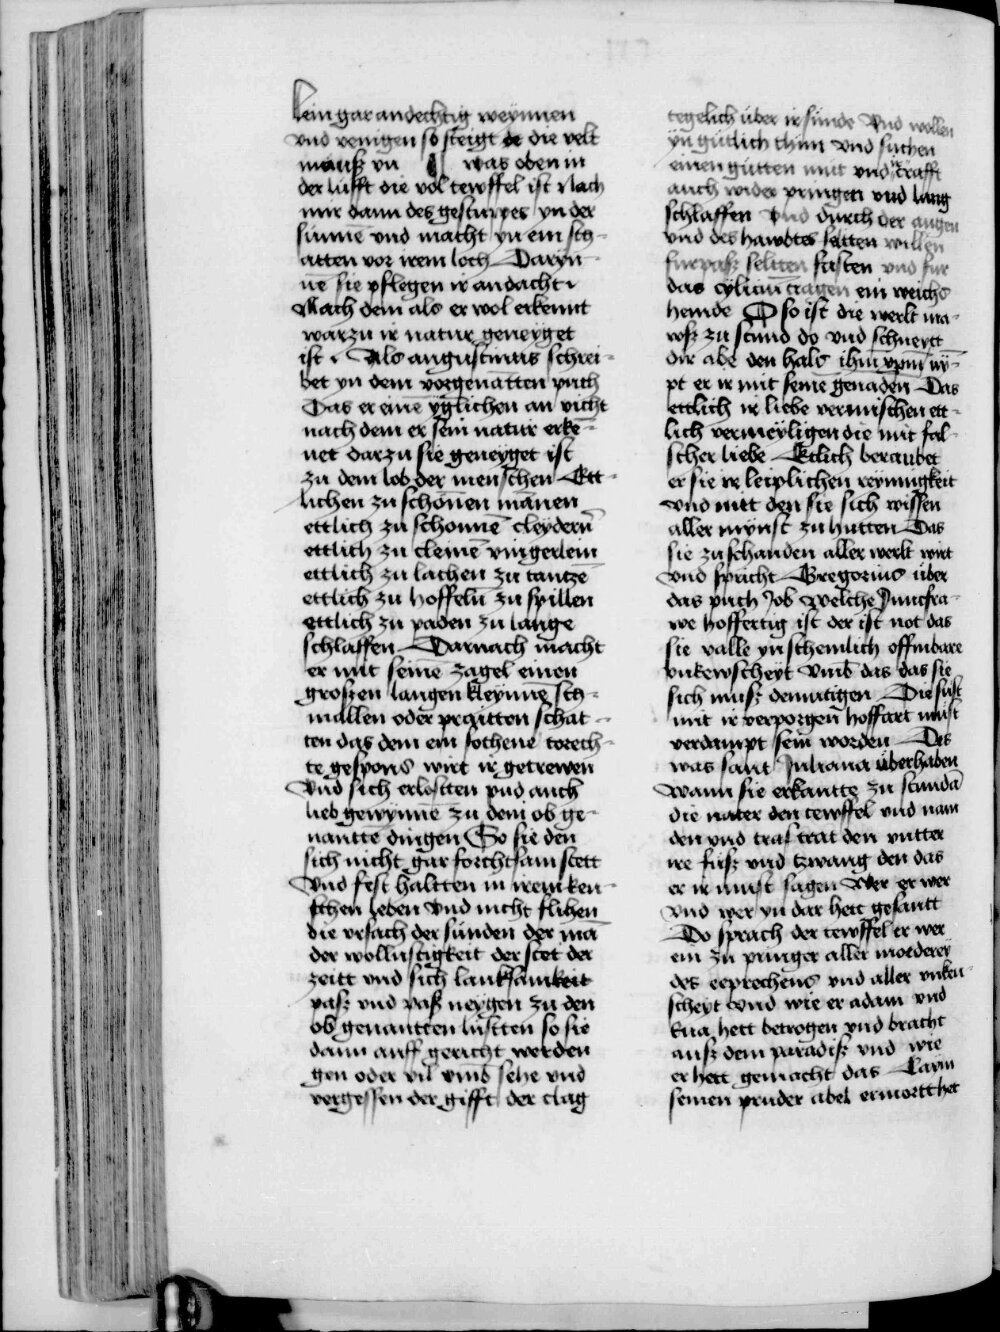 lein gar andechtig weynnen
vnd venigen so steigt die velt
mauß vn was oben in
der lufft die vol tewffel ist Nach
mir dann des gestuppes yn der
sunnē vnd macht yn ein sch-
atten vor irem loch Daryn-
nē sie pflegen ir andacht
Nach dem als er wol erkennt
warzu ir natur geneyget
ist Als augustinus schrei-
bet yn dem vorgenatten puch
Das er eine yglichen an vicht
nach dem er sein natur erke-
net darzu sie geneyget ist
zu dem lob der menschen Ett-
lichen zu schonen mānen
ettlich zu schonnē cleydern
ettlich zu cleinē vingerlein
ettlich zu lachen zu tantzē
ettlich zu hoffeln zu spillen
ettlich zu paden zu lange
schlaffen Darnach macht
er mit seinē zagel einen
großen langen kleynnē sch-
mallen oder praitten schat-
ten das dem ein sothene torech-
te gespons wirt ir getrewen
Vnd sich erlostten vnd auch
lieb gewynnē zu dem ob ge-
nantte dingen So sie den
sich nicht gar forchtsam stett
Vnd fest haltten in irem ken-
schen leben Vnd nicht flihen
die vrsach der sunden der mā
der wollustigkeit der stet der
zeitt vnd sich lanksamkeit
paß vnd paß neygen zu den
ob genantten lustten so sie
dann auff gericht werden
gen oder vil vmb sehe vnd
vergessen der gifft der clag
tegelich über ir sunde Vnd wollen
yn gutlich thun vnd suchen
einen gutten mut vnd ir crafft
auch wider pringen vnd lang
schlaffen Vnd durch der augen
vnd des hawbtes seltten willen
furpaß seltten fasten vnd fur
das cylium tragen ein weichs
hemde O so ist die werlt ma-
wß zu stund do vnd schneytt
dir abe den hals ihm xpm ny-
pt er ir mit seine genaden Das
ettlich ir liebe vermischen ett-
lich vermeyligen die mit fal-
scher liebe Etlich beraubet
er sie ir leiplichen reynnigkeit
vnd mit den sie sich wissen
aller mynst zu hutten Das
sie zu schanden aller werlt wirt
vnd spricht Gregorius über
das puch Job Welche Junckfra-
we hoffertig ist der ist not das
sie valle yn schemlich offinbare
vnkewscheyt Vmb das das sie
sich muß demutigen Die sust
mit ir verporgen hoffart must
verdampt sein worden Des
was sant Juliana überhaben
Wann sie erkantte zu stundā
die nater den tewffel vnd nam
den vnd traf trat den vntter
ire fuß vnd tzwang den das
er ir must sagen Wer er wer
Vnd wer yn dar hett gesantt
Do sprach der tewffel er wer
ein zu pringer aller morderey
des eeprechens vnd aller vnken-
scheyt Vnd wie er adam vnd
Eua hett betrogen vnd bracht
auß dem paradiß vnd wie
er hett gemacht das Caym
seinen pruder abel ermortthet